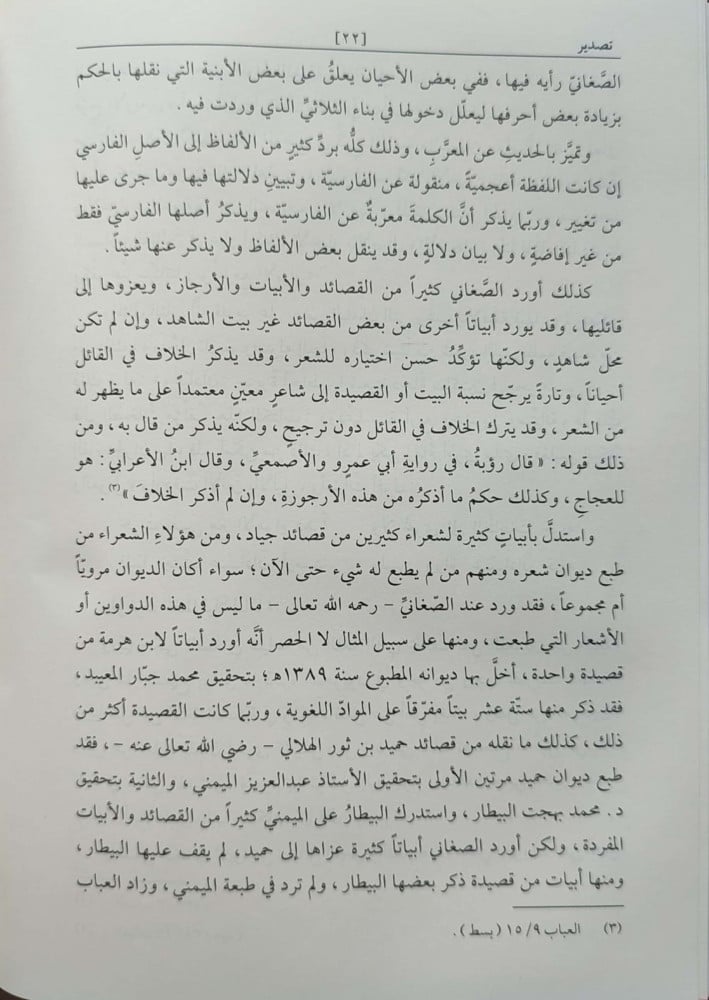 تصدير
[٢٢]
الصَّغانيّ رأيه فيها ، ففي بعض الأحيان يعلقُ على بعض الأبنية التي نقلها بالحكم
بزيادة بعض أحرفها ليعلّل دخولها في بناء الثلاثيِّ الذي وردت فيه .
وتميَّز بالحديثِ عن المعرَّبِ ، وذلك كلُّه بردِّ كثيرٍ من الألفاظ إلى الأصلِ الفارسي
إن كانت اللفظة أعجميّةً ، منقولة عن الفارسيّة ، وتبيينِ دلالتها فيها وما جرى عليها
من تغيير ، وربّما يذكر أنَّ الكلمةَ معرّبةٌ عن الفارسيّة ، ويذكرُ أصلها الفارسيّ فقط
من غير إفاضةٍ ، ولا بيان دلالةٍ ، وقد ينقل بعض الألفاظ ولا يذكر عنها شيئاً .
كذلك أورد الصَّغاني كثيراً من القصائد والأبيات والأرجاز ، ويعزوها إلى
قائليها ، وقد يورد أبياتاً أخرى من بعض القصائد غير بيت الشاهد ، وإن لم تكن
محلّ شاهدٍ ، ولكنّها تؤكِّدُ حسن اختياره للشعر ، وقد يذكرُ الخلاف في القائل
أحياناً ، وتارةً يرجّح نسبة البيت أو القصيدة إلى شاعرٍ معيّنٍ معتمداً على ما يظهر له
من الشعر ، وقد يترك الخلاف في القائل دون ترجيحٍ ، ولكنّه يذكر من قال به ، ومن
ذلك قوله : « قال رؤبةُ ، في روايةِ أبي عمرٍو والأصمعيِّ ، وقال ابنُ الأعرابيِّ : هو
للعجاجِ ، وكذلك حكمُ ما أذكرُه من هذه الأرجوزةِ ، وإن لم أذكر الخلافَ »(٣) .
واستدلَّ بأبياتٍ كثيرة لشعراء كثيرين من قصائد جياد ، ومن هؤلاءِ الشعراء من
طبع ديوان شعره ومنهم من لم يطبع له شيء حتى الآن ؛ سواء أكان الديوان مرويّاً
أم مجموعاً ، فقد ورد عند الصّغانيِّ – رحمه الله تعالى – ما ليس في هذه الدواوين أو
الأشعار التي طبعت ، ومنها على سبيل المثال لا الحصر أنَّه أورد أبياتاً لابن هرمة من
قصيدة واحدة ، أخلَّ بها ديوانه المطبوع سنة ١٣٨٩هـ ؛ بتحقيق محمد جبّار المعيبد ،
فقد ذكر منها ستّة عشر بيتاً مفرّقاً على الموادّ اللغوية ، وربّما كانت القصيدة أكثر من
ذلك ، كذلك ما نقله من قصائد حميد بن ثور الهلالي – رضي الله تعالى عنه – ، فقد
طبع ديوان حميد مرتين الأولى بتحقيق الأستاذ عبدالعزيز الميمني ، والثانية بتحقيق
د . محمد بهجت البيطار ، واستدرك البيطارُ على الميمنيِّ كثيراً من القصائد والأبيات
المفردة ، ولكن أورد الصغاني أبياتاً كثيرة عزاها إلى حميد ، لم يقف عليها البيطار ،
ومنها أبيات من قصيدة ذكر بعضها البيطار ، ولم ترد في طبعة الميمني ، وزاد العباب
(٣) العباب ١٥/٩ (بسط) .